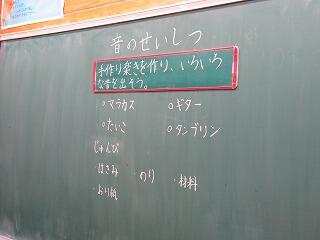 音のせいしつ
手作り楽きを作り、いろいろ
な音を出そう。
○マラカス ○ギター
○たいこ ○タンブリン
じゅんび
・はさみ ・のり ・材料
・おり紙